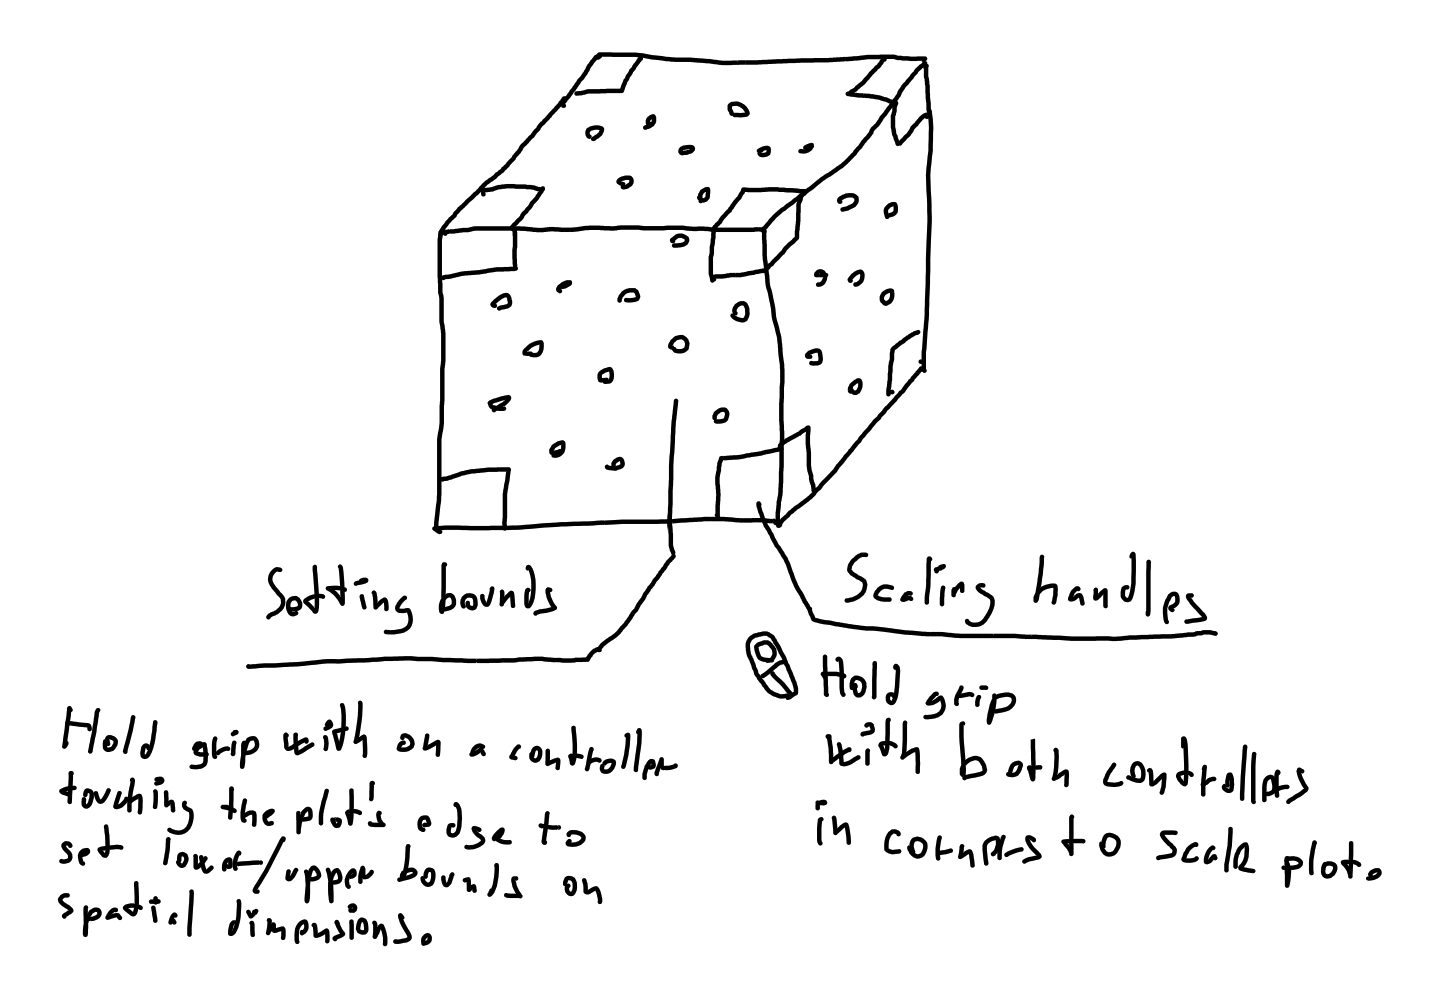 Setting bounds
Scaling handles
Hold grip with on a controller
touching the plot's edge to
set lower/upper bounds on
spatial dimensions.
Hold grip
with both controllers
in corners to scale plot.